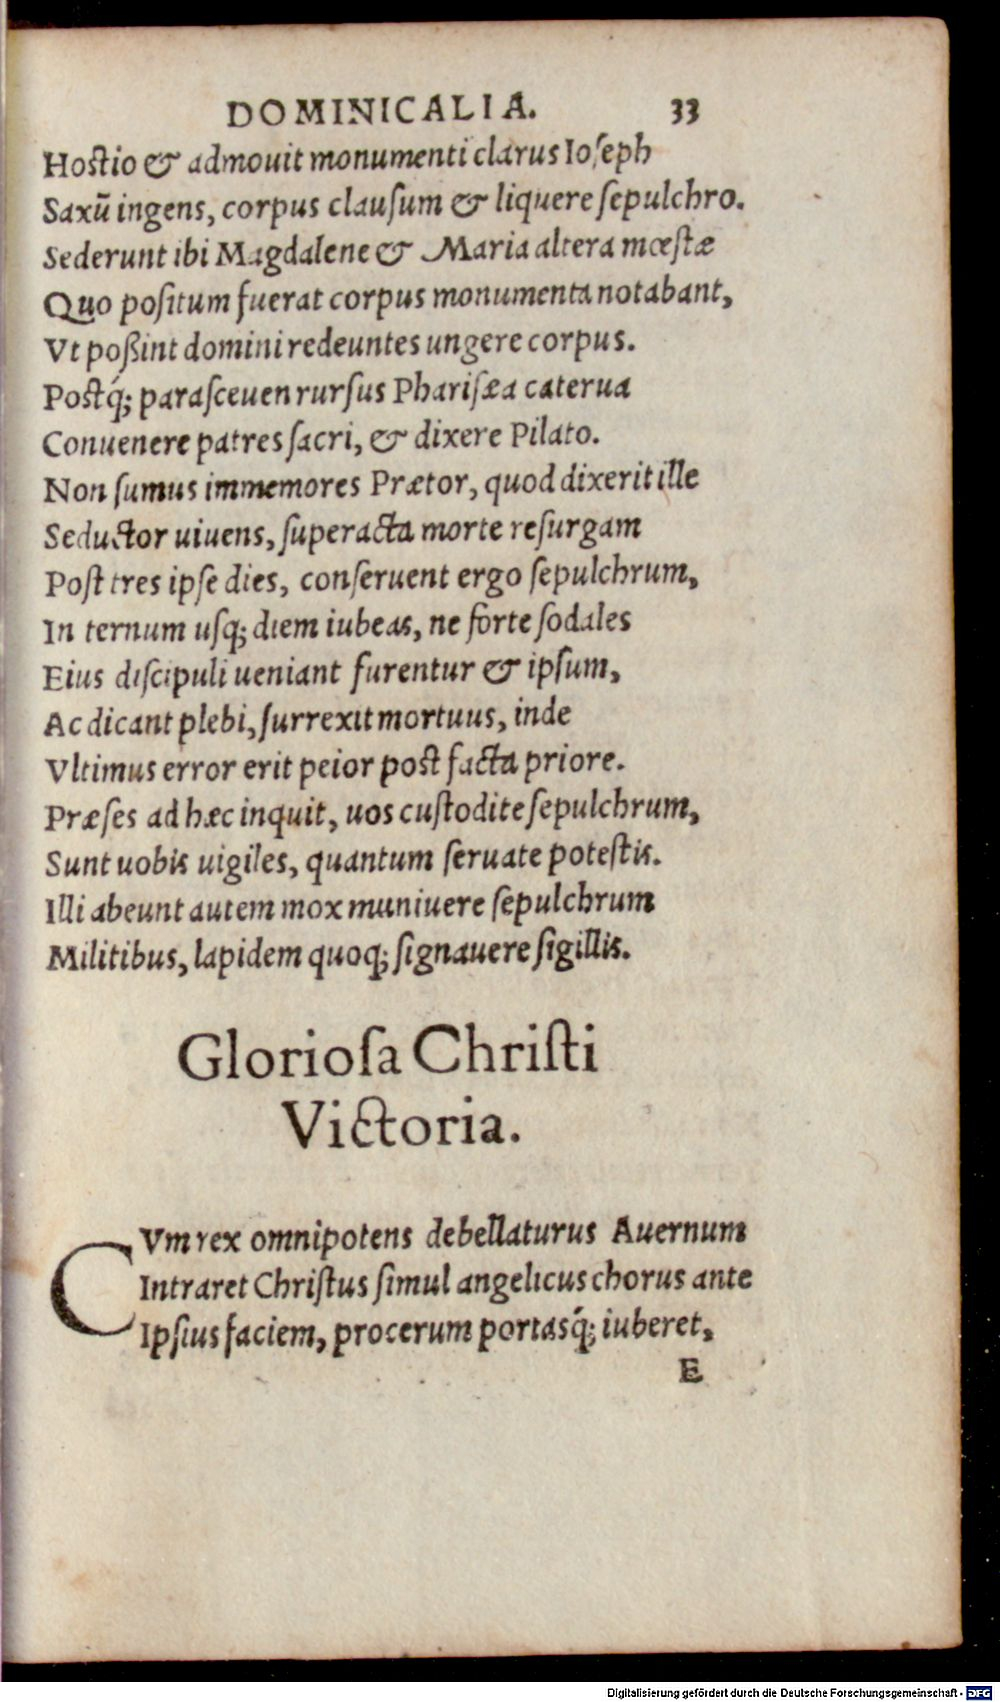 DOMINICALIA. 33
Hostio & admouit monumenti clarus Ioſeph
Saxū ingens, corpus clauſum & liquere ſepulchro.
Sederunt ibi Magdalene & Maria altera mœſtæ
Quo poſitum fuerat corpus monumenta notabant,
Vt poßint domini redeuntes ungere corpus.
Postq́; paraſceuen rurſus Phariſæa caterua
Conuenere patres ſacri, & dixere Pilato.
Non ſumus immemores Prætor, quod dixerit ille
Seductor uiuens, ſuperacta morte reſurgam
Post tres ipſe dies, conſeruent ergo ſepulchrum,
In ternum uſq; diem iubeas, ne forte ſodales
Eius diſcipuli ueniant furentur & ipſum,
Ac dicant plebi, ſurrexit mortuus, inde
Vltimus error erit peior post facta priore.
Præſes ad hæc inquit, uos cuſtodite ſepulchrum,
Sunt uobis uigiles, quantum ſeruate poteſtis.
Illi abeunt autem mox muniuere ſepulchrum
Militibus, lapidem quoq; ſignauere ſigillis.
Glorioſa Chriſti
Victoria.
CVm rex omnipotens debellaturus Auernum
Intraret Chriſtus ſimul angelicus chorus ante
Ipſius faciem, procerum portasq́; iuberet,
E
Digitalisierung gefördert durch die Deutsche Forschungsgemeinschaft - DFG